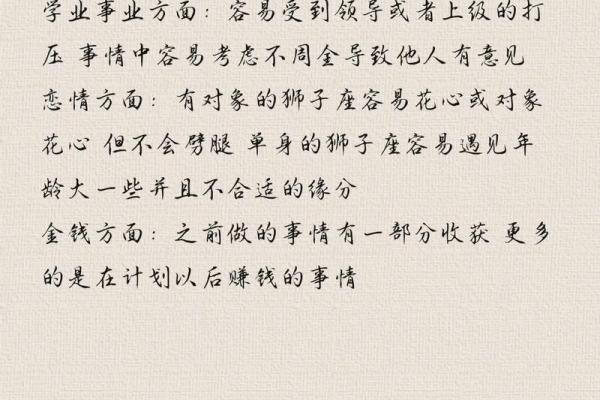 学业事业方面：容易受到领导或者上级的打
压 事情中容易考虑不周全导致他人有意见
恋情方面：有对象的狮子座容易花心或对象
花心 但不会劈腿 单身的狮子座容易遇见年
龄大一些并且不合适的缘分
金钱方面：之前做的事情有一部分收获 更多
的是在计划以后赚钱的事情